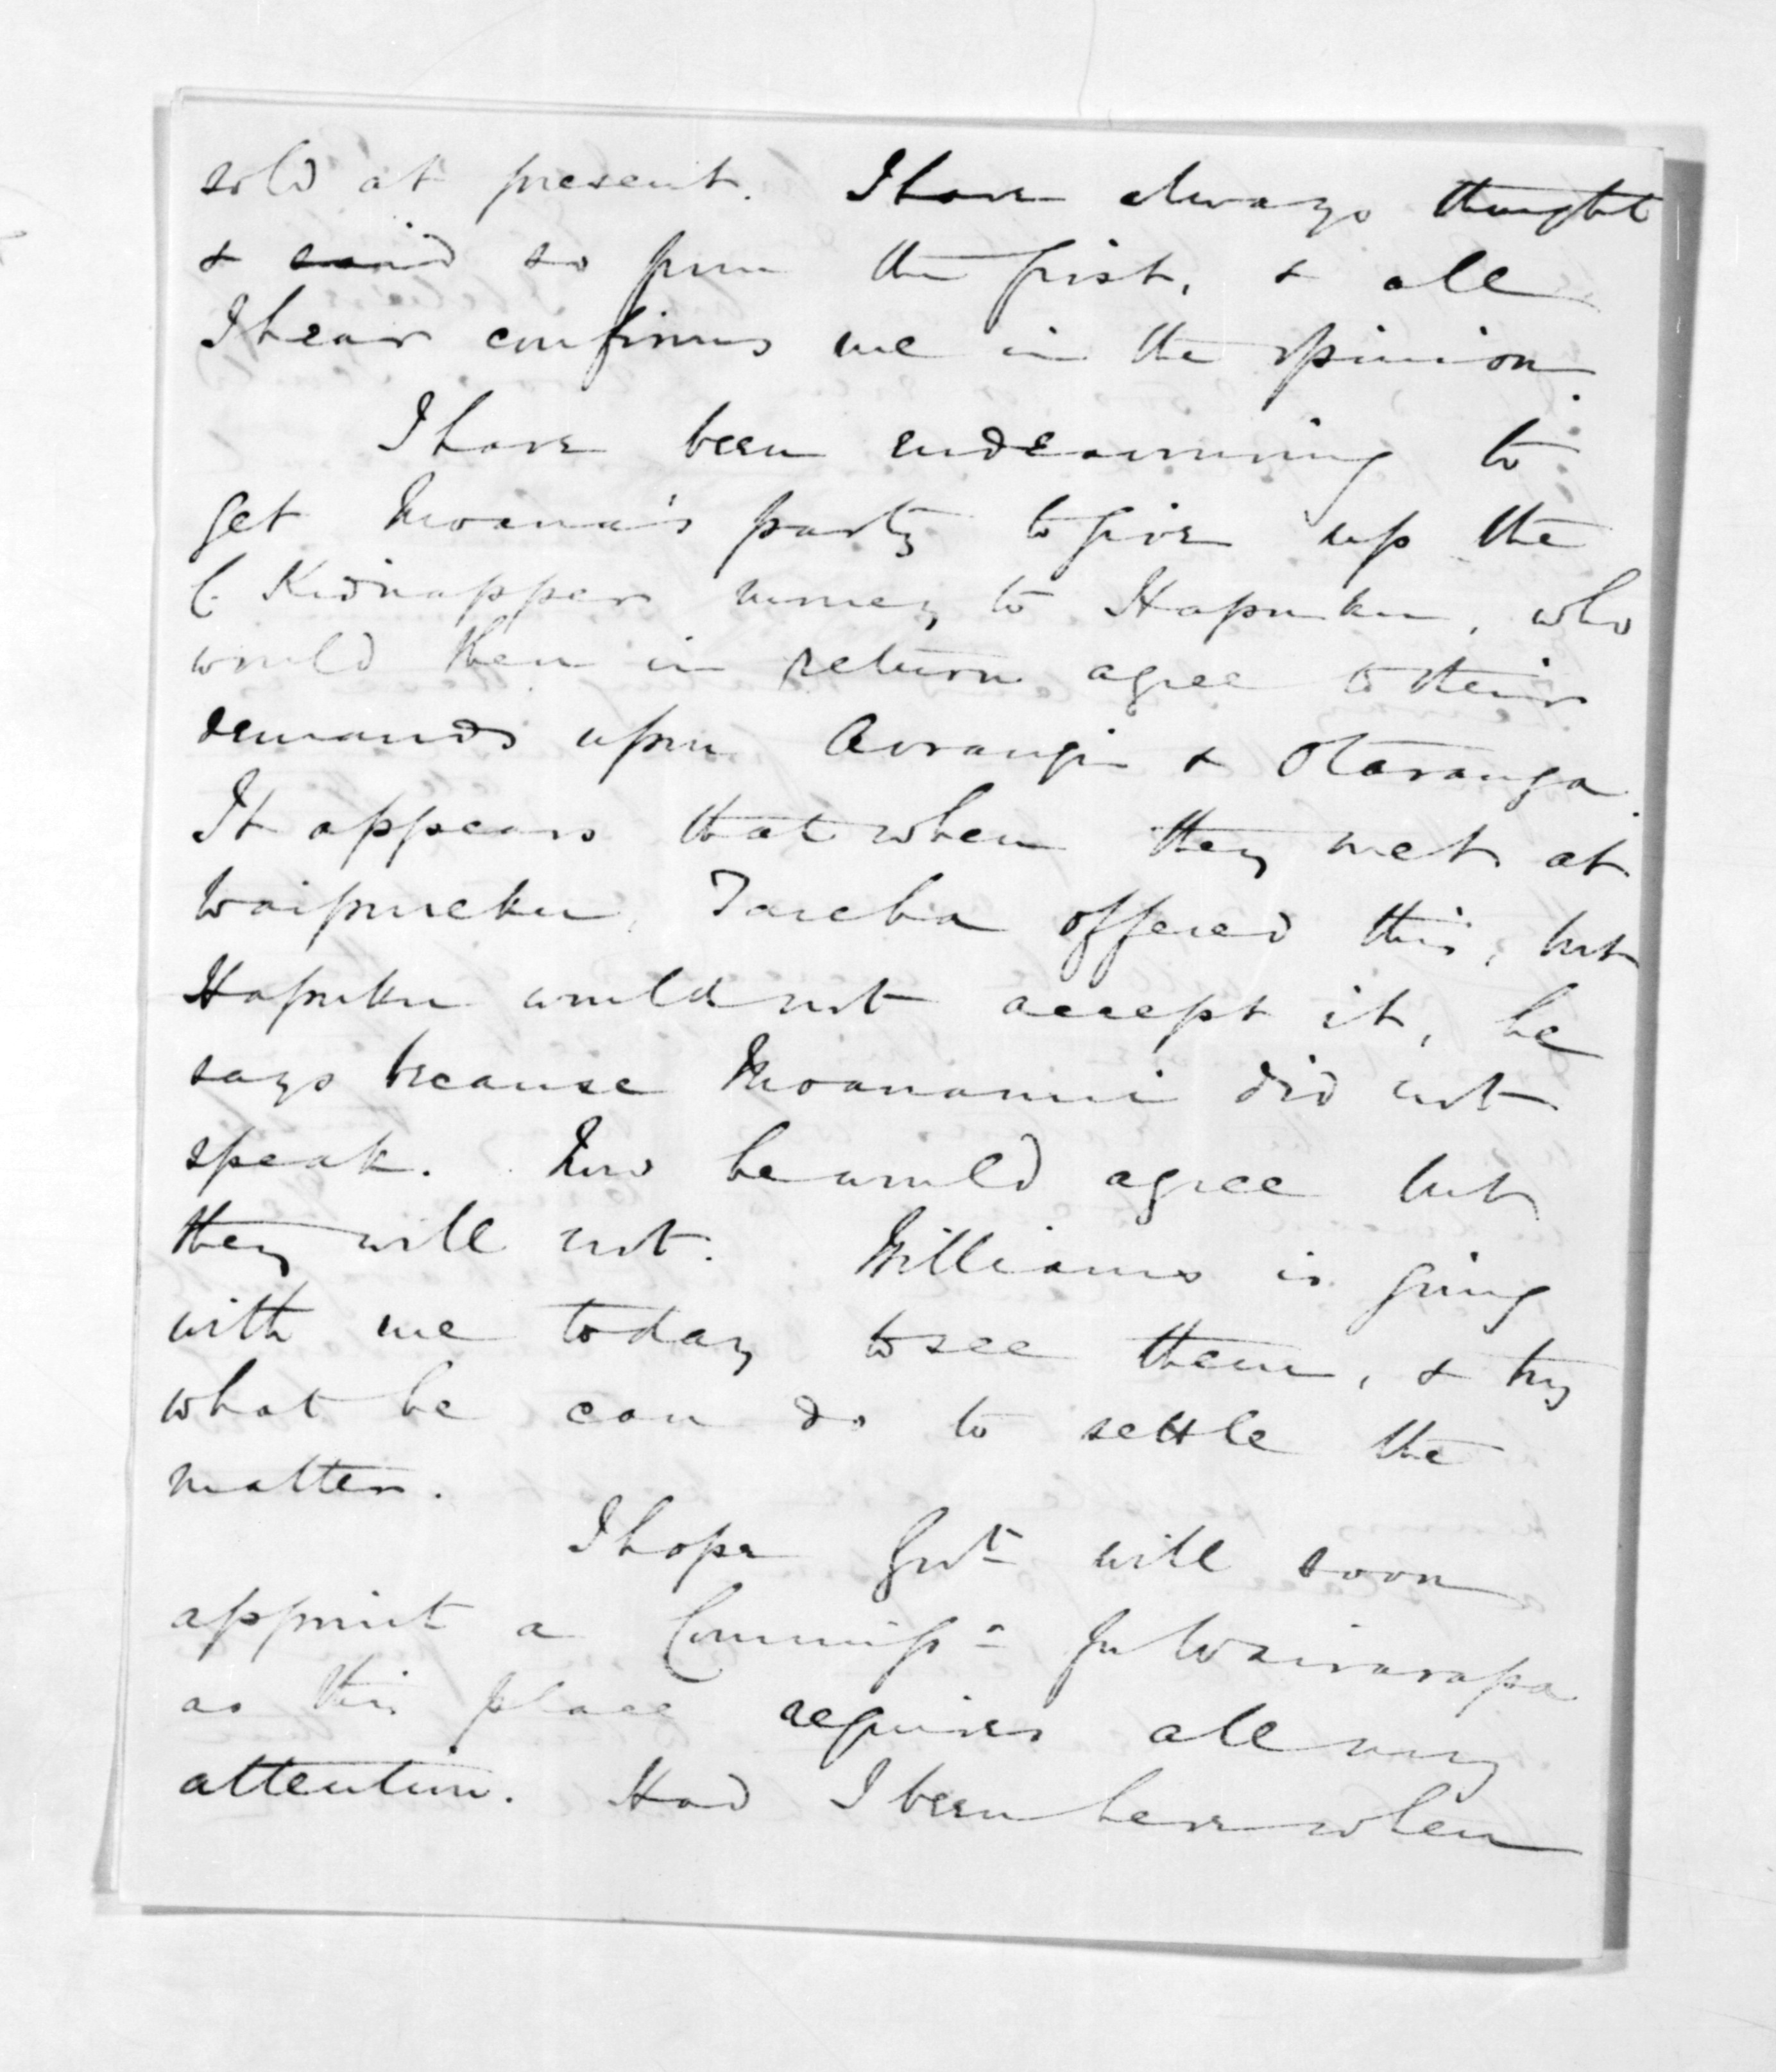 sold at present. I have always thought
& said so from the first, & all
I hear confirms me in the opinion.
I have been endeavouring to
get Moana's party to give up the
C. Kidnapper money to Hapuku, who
would then in return agree to their
demands upon Aorangi & Otaranga.
It appears that when they met at
Waipureku, Tareha offered this, but
Hapuku would not accept it, he
says because Moananui did not
speak. Now he would agree but
they will not. Williams is going
with me today to see them, & try
what he can do to settle the
matter.
I hope Govt. will soon
appoint a Commissr. for Wairarapa
as this place requires all my
attention. Had I been here when